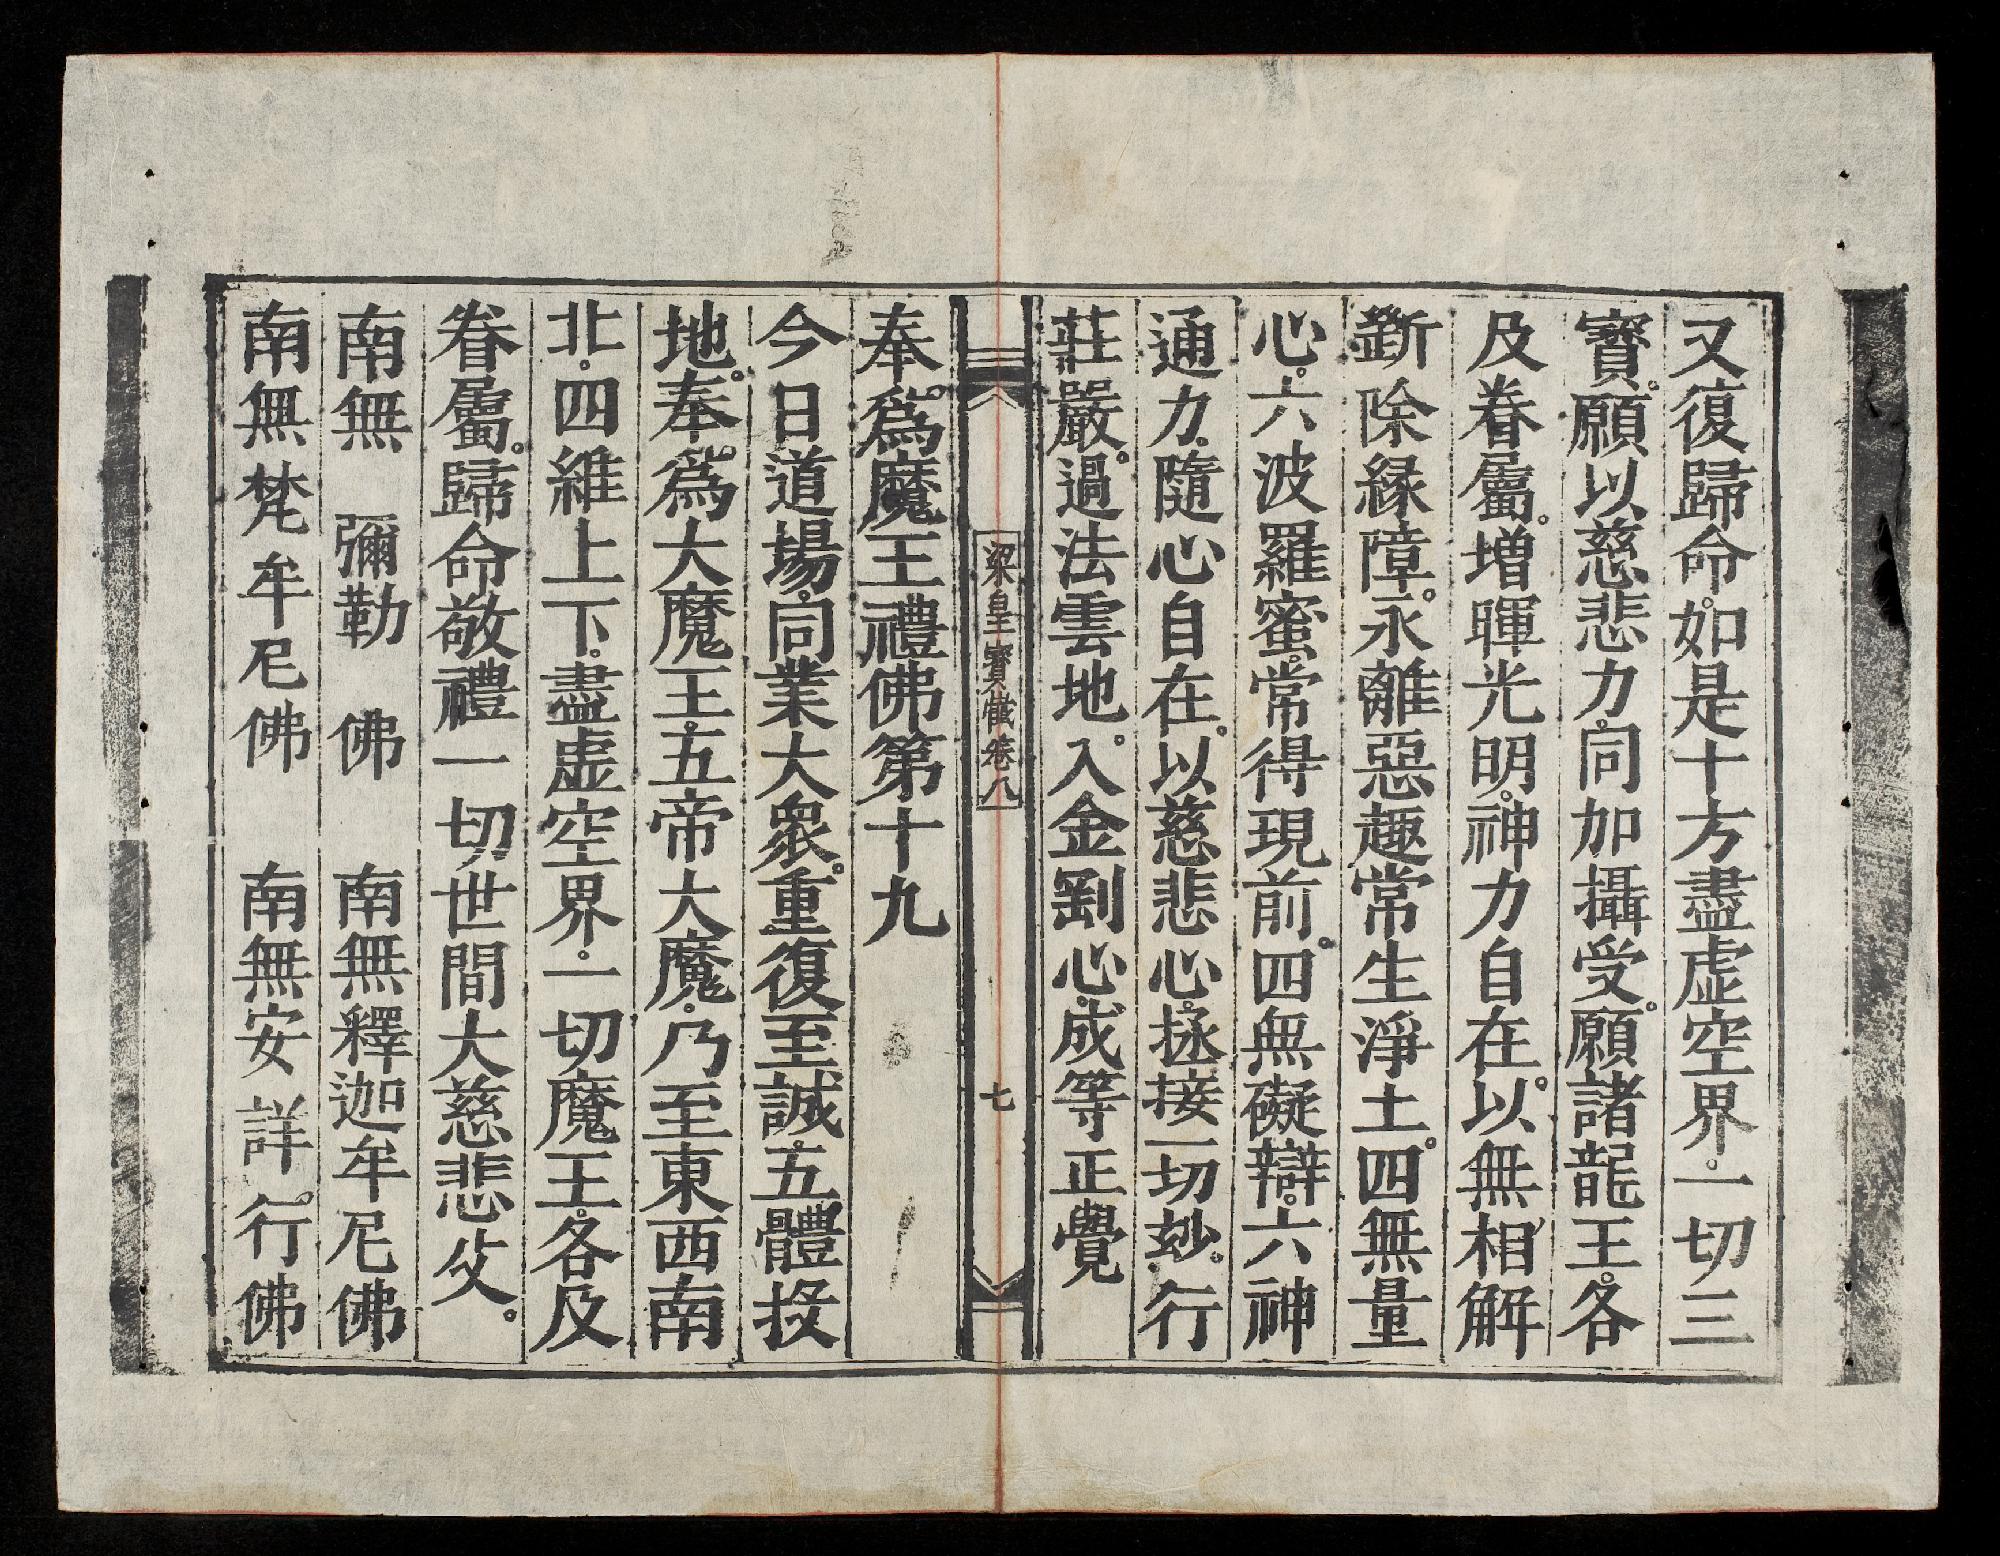 又復歸命如是十方盡虛空界。一切三
寶。願以慈悲力。同加攝受。願諸龍王。各
及眷屬。增暉光明。神力自在。以無相解
斷除緣障。永離惡趣常生淨土。四無量
心。六波羅蜜。常得現前。四無礙辯。六神
通力。隨心自在。以慈悲心。拯接一切。妙行
莊嚴。過法雲地。入金剛心。成等正覺
梁皇寶懺卷八
七
奉。爲魔王禮佛第十九
今日道場。同業大衆。重復至誠。五體投
地。奉。爲大魔王。五帝大魔。乃至東西南
北。四維上下。盡虛空界。一切魔王。各及
眷屬。歸命敬禮一切世間大慈悲父。
南無 彌勒 佛 南無釋迦牟尼佛
南無梵牟尼佛 南無安詳行佛